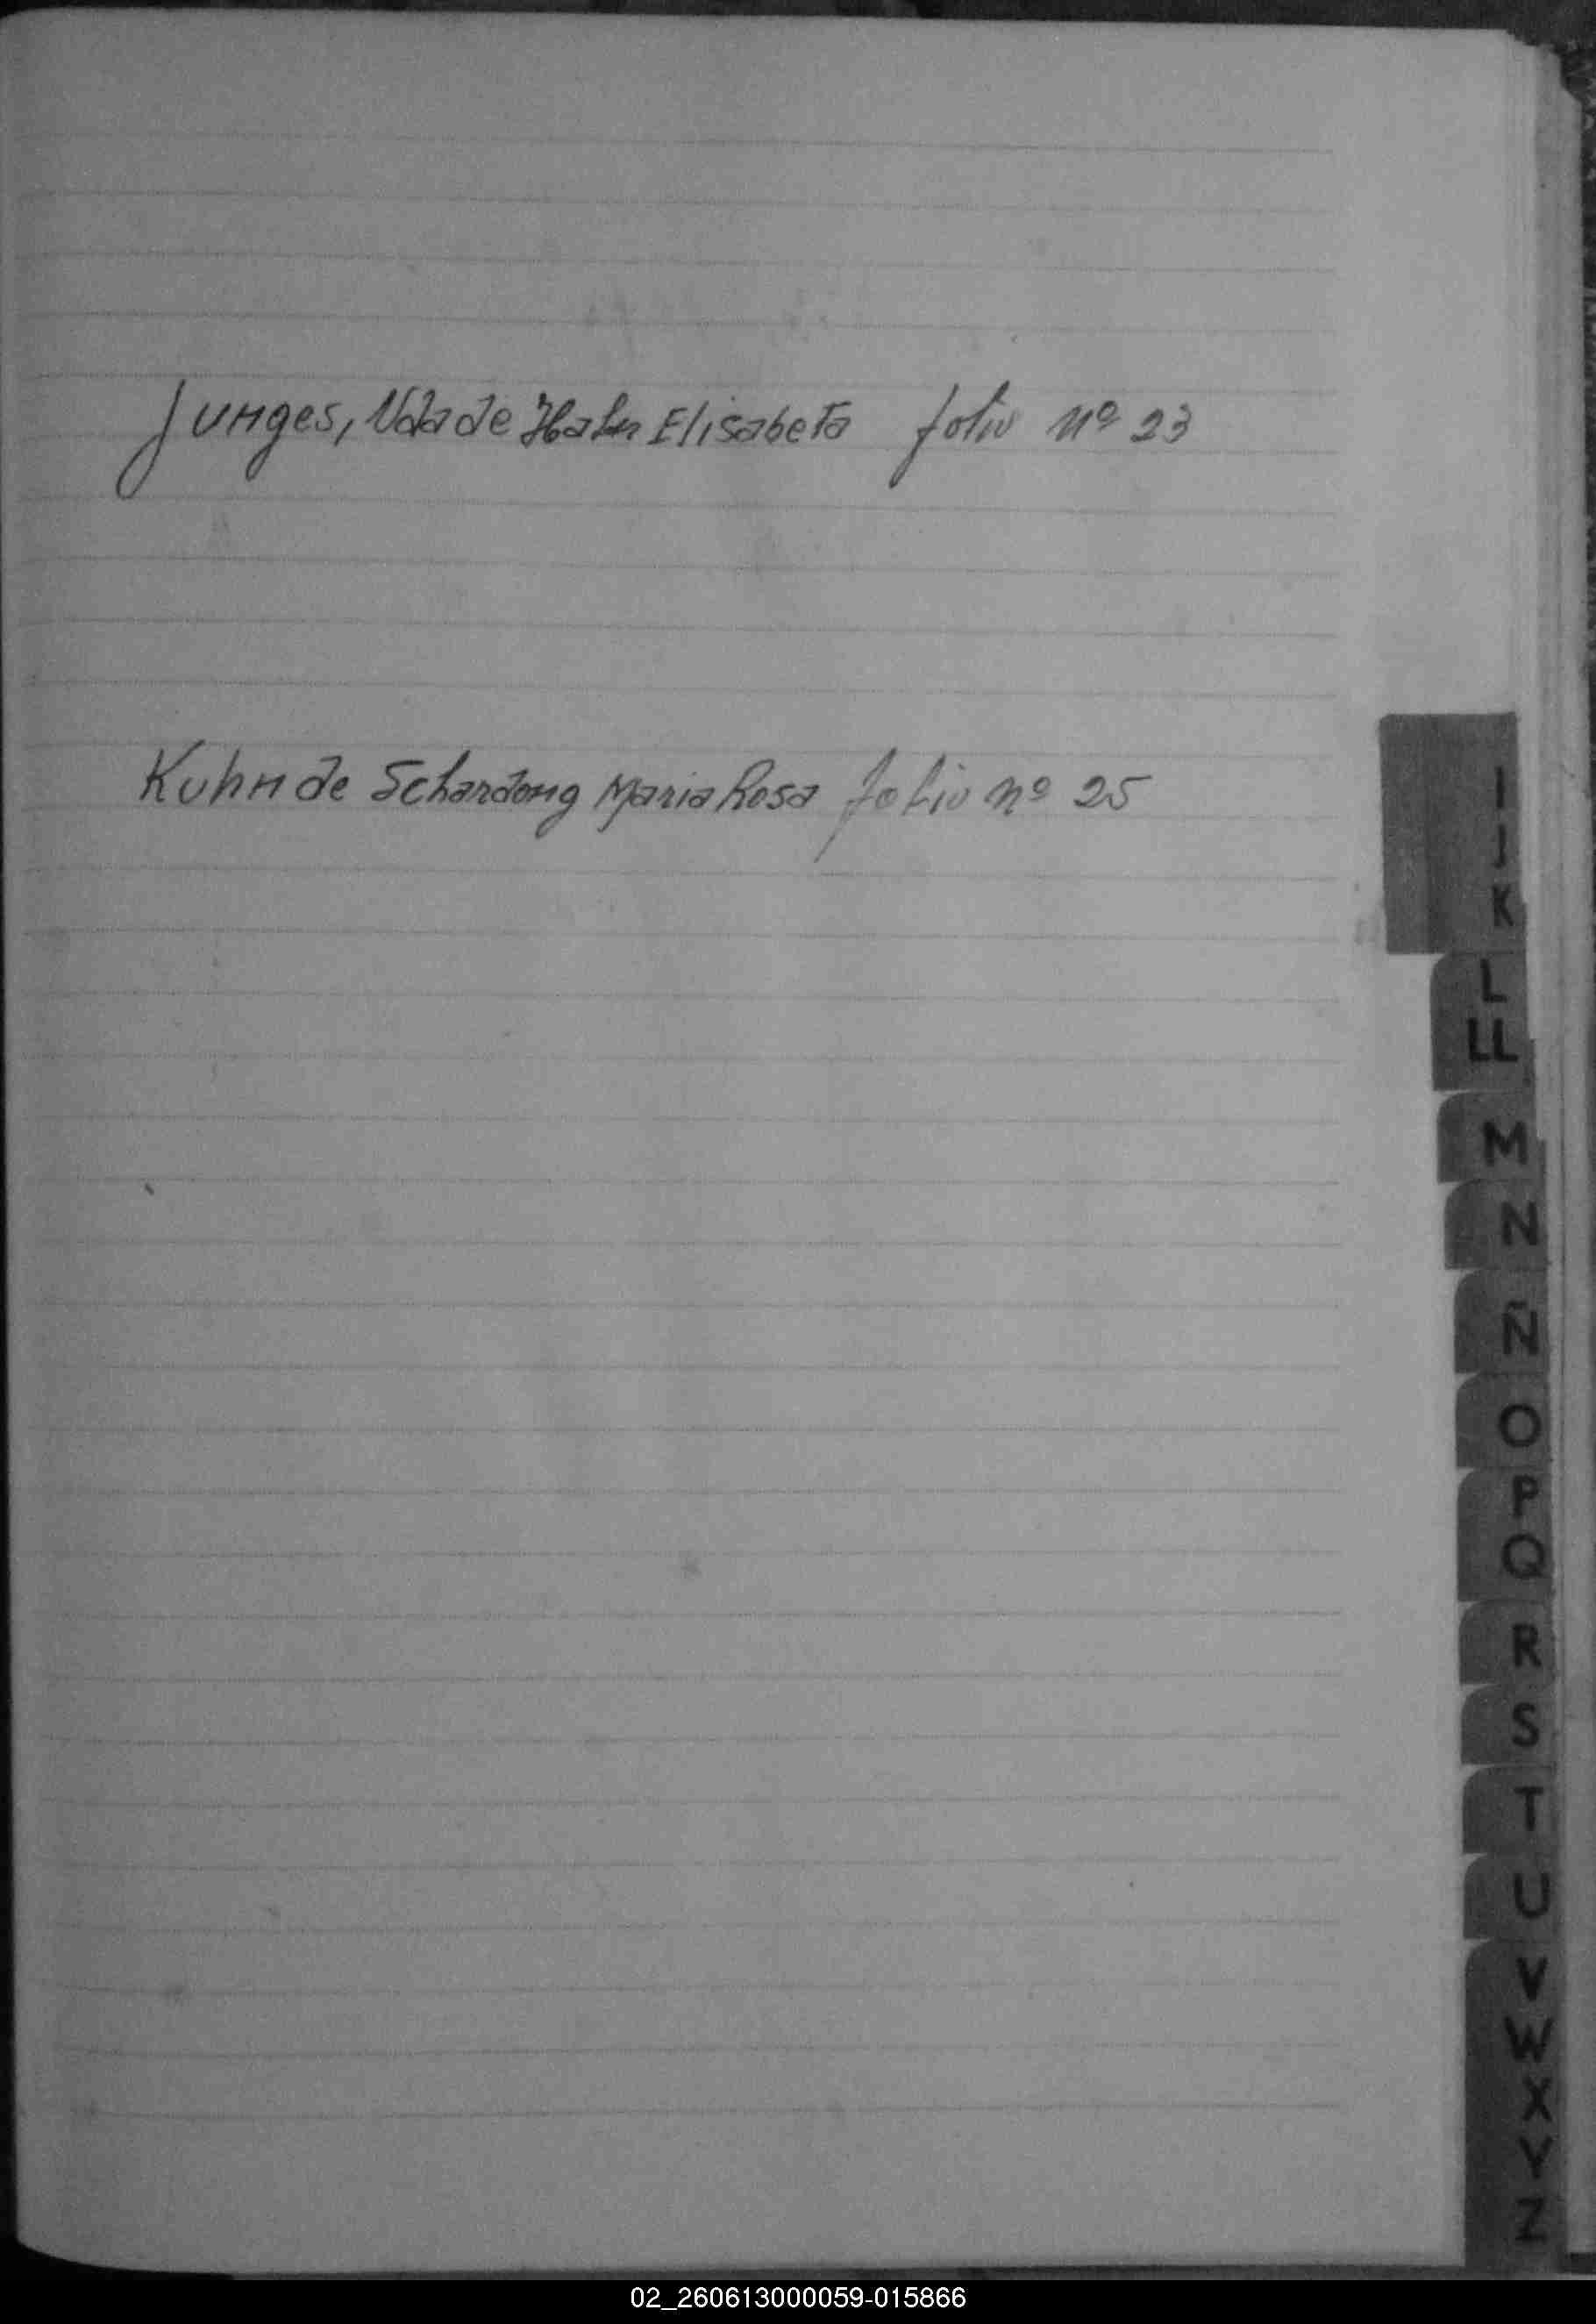 Junges, Vda de Hahn Elisabeta folio nº 23
Kuhn de Schardong Maria Rosa folio nº 25
I
J
K
L
LL
M
N
Ñ
O
P
Q
R
S
T
U
V
W
X
Y
Z
02_260613000059-015866